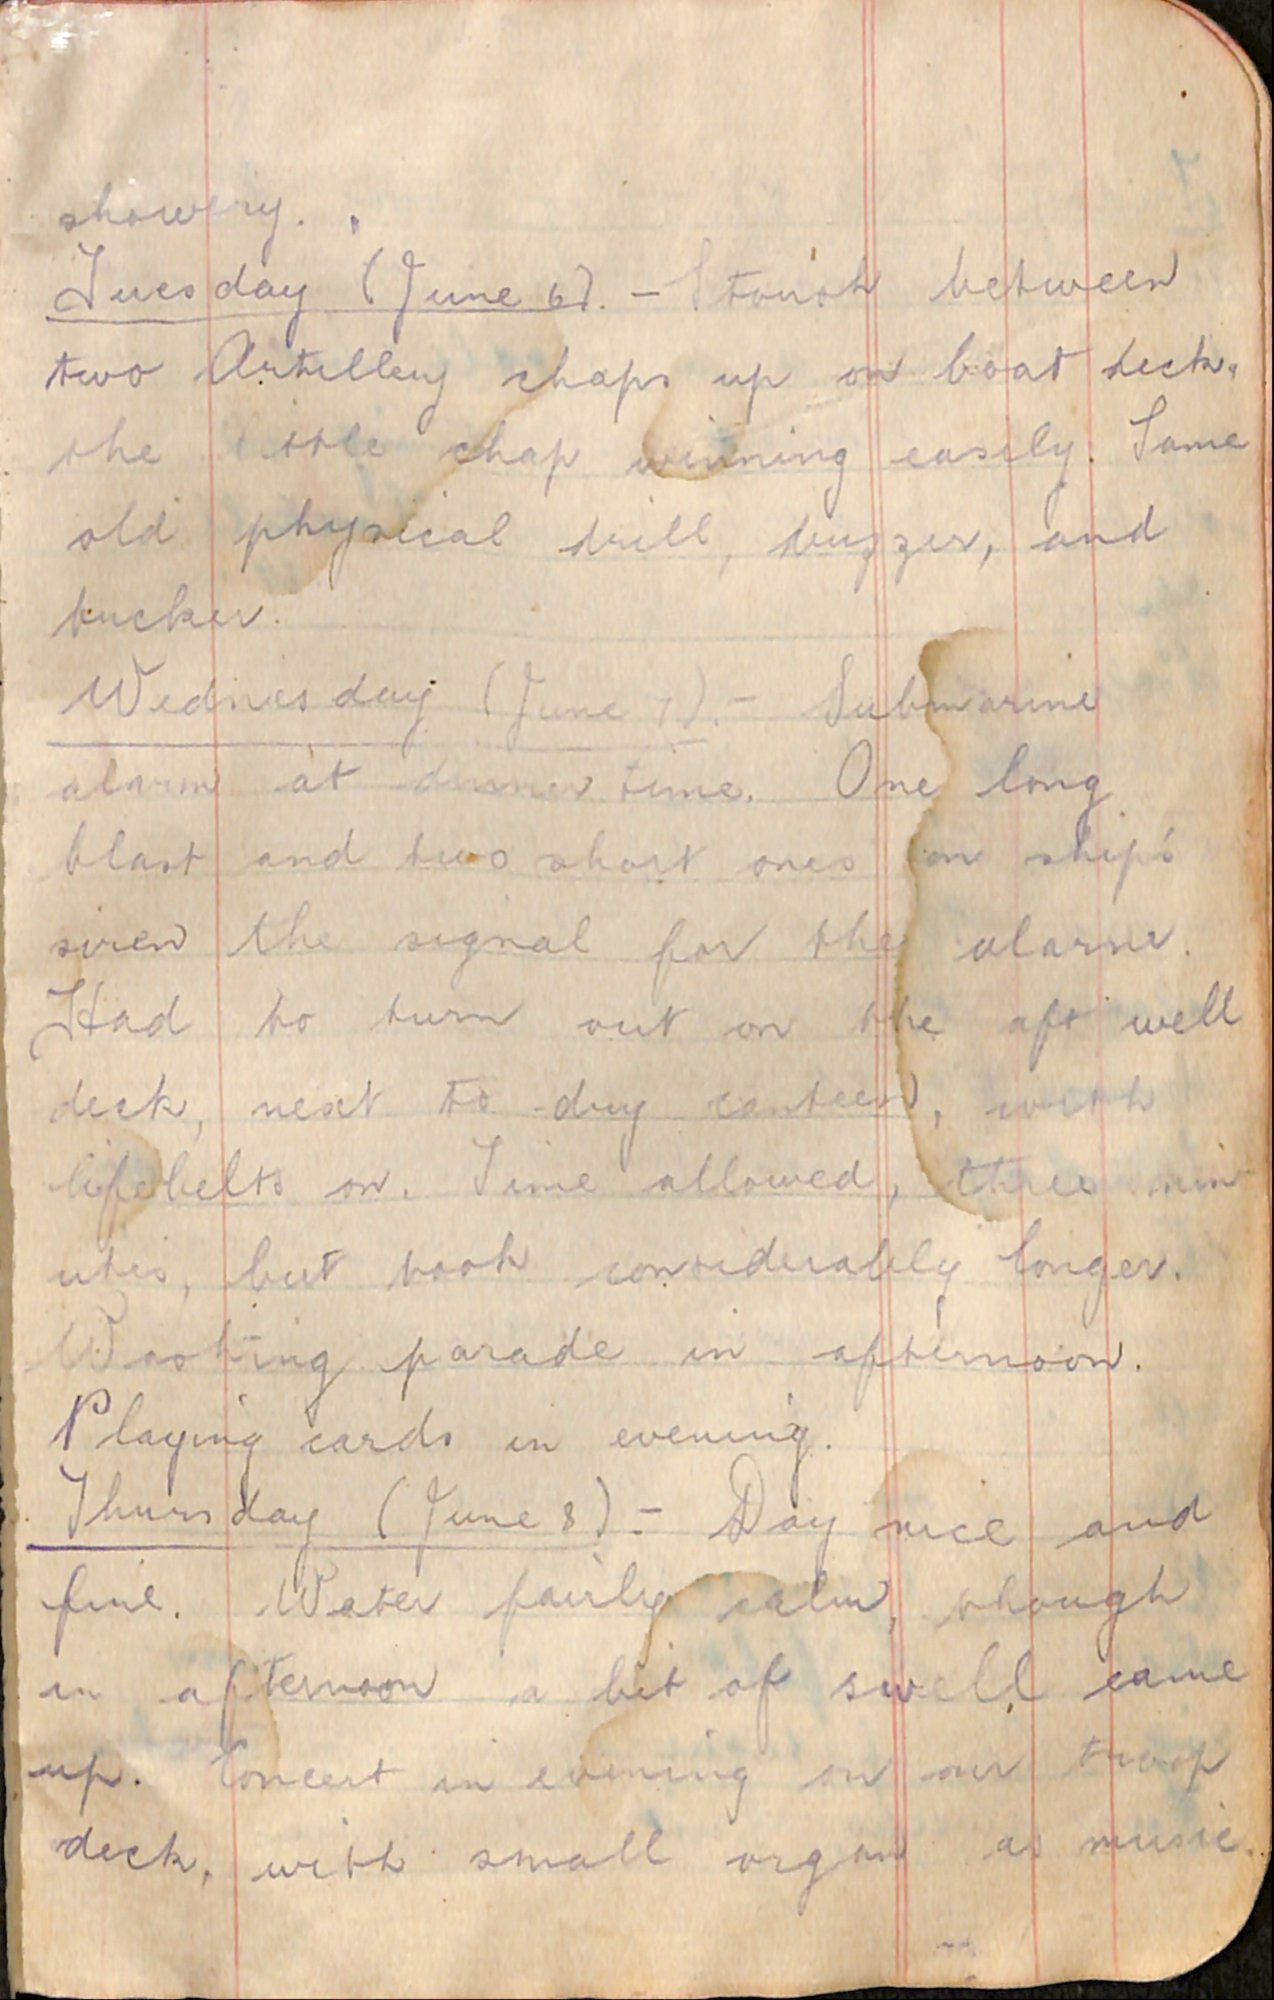 showery.
Tuesday (June 6). - Stoush between
two Artillery chaps up on boat deck,
the little chap winning easily. Same
old physical drill, buzzer, and
tucker.
Wednesday (June 7). - Submarine
alarm at dinner time. One long
blast and two short ones on ship's
siren the signal for the alarm.
Had to turn out on the aft well
deck, next to dry canteen, with
lifebelts on. Time allowed, three min
utes, but took considerably longer.
Washing parade in afternoon.
Playing cards in evening.
Thursday (June 8) :- Day nice and
fine. Water fairly calm, though
in afternoon a bit of swell came
up. Concert in evening on our troop
deck, with small organ as music.